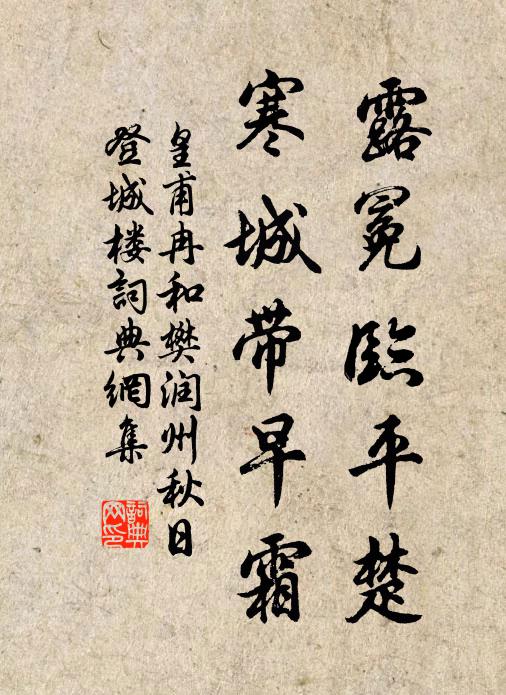 露冕临平楚
寒城带早霜
皇甫冉和樊润州秋日
登城楼词典网集
词典网印